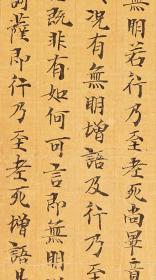 無明若行乃至老死尚畢竟
況有無明增語及行乃至
語既非有如何可言即無明
薩即行乃至老死增語是